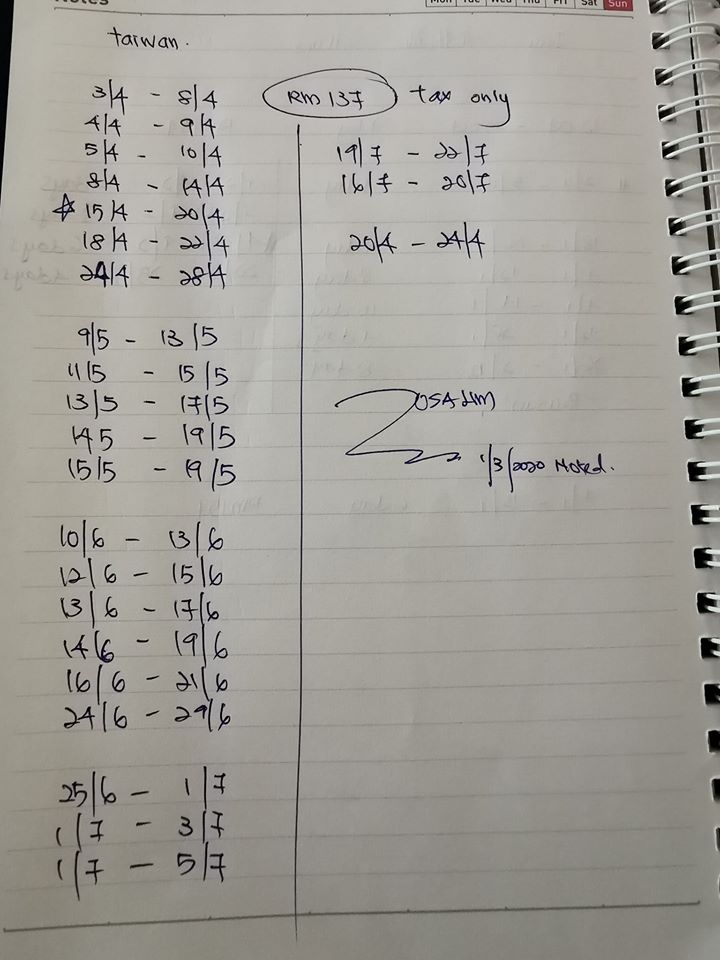 Notes
Mon Tue Wed Thu Fri Sat Sun
taiwan.
3/4 - 8/4
4/4 - 9/4
5/4 - 10/4
8/4 - 14/4
15/4 - 20/4
18/4 - 22/4
24/4 - 28/4
9/5 - 13/5
11/5 - 15/5
13/5 - 17/5
145 - 19/5
15/5 - 19/5
10/6 - 13/6
12/6 - 15/6
13/6 - 17/6
14/6 - 19/6
16/6 - 21/6
24/6 - 29/6
25/6 - 1/7
1/7 - 3/7
1/7 - 5/7
RM 137 tax only
19/7 - 22/7
16/7 - 20/7
20/4 - 24/4
1/3/2020 Noted.